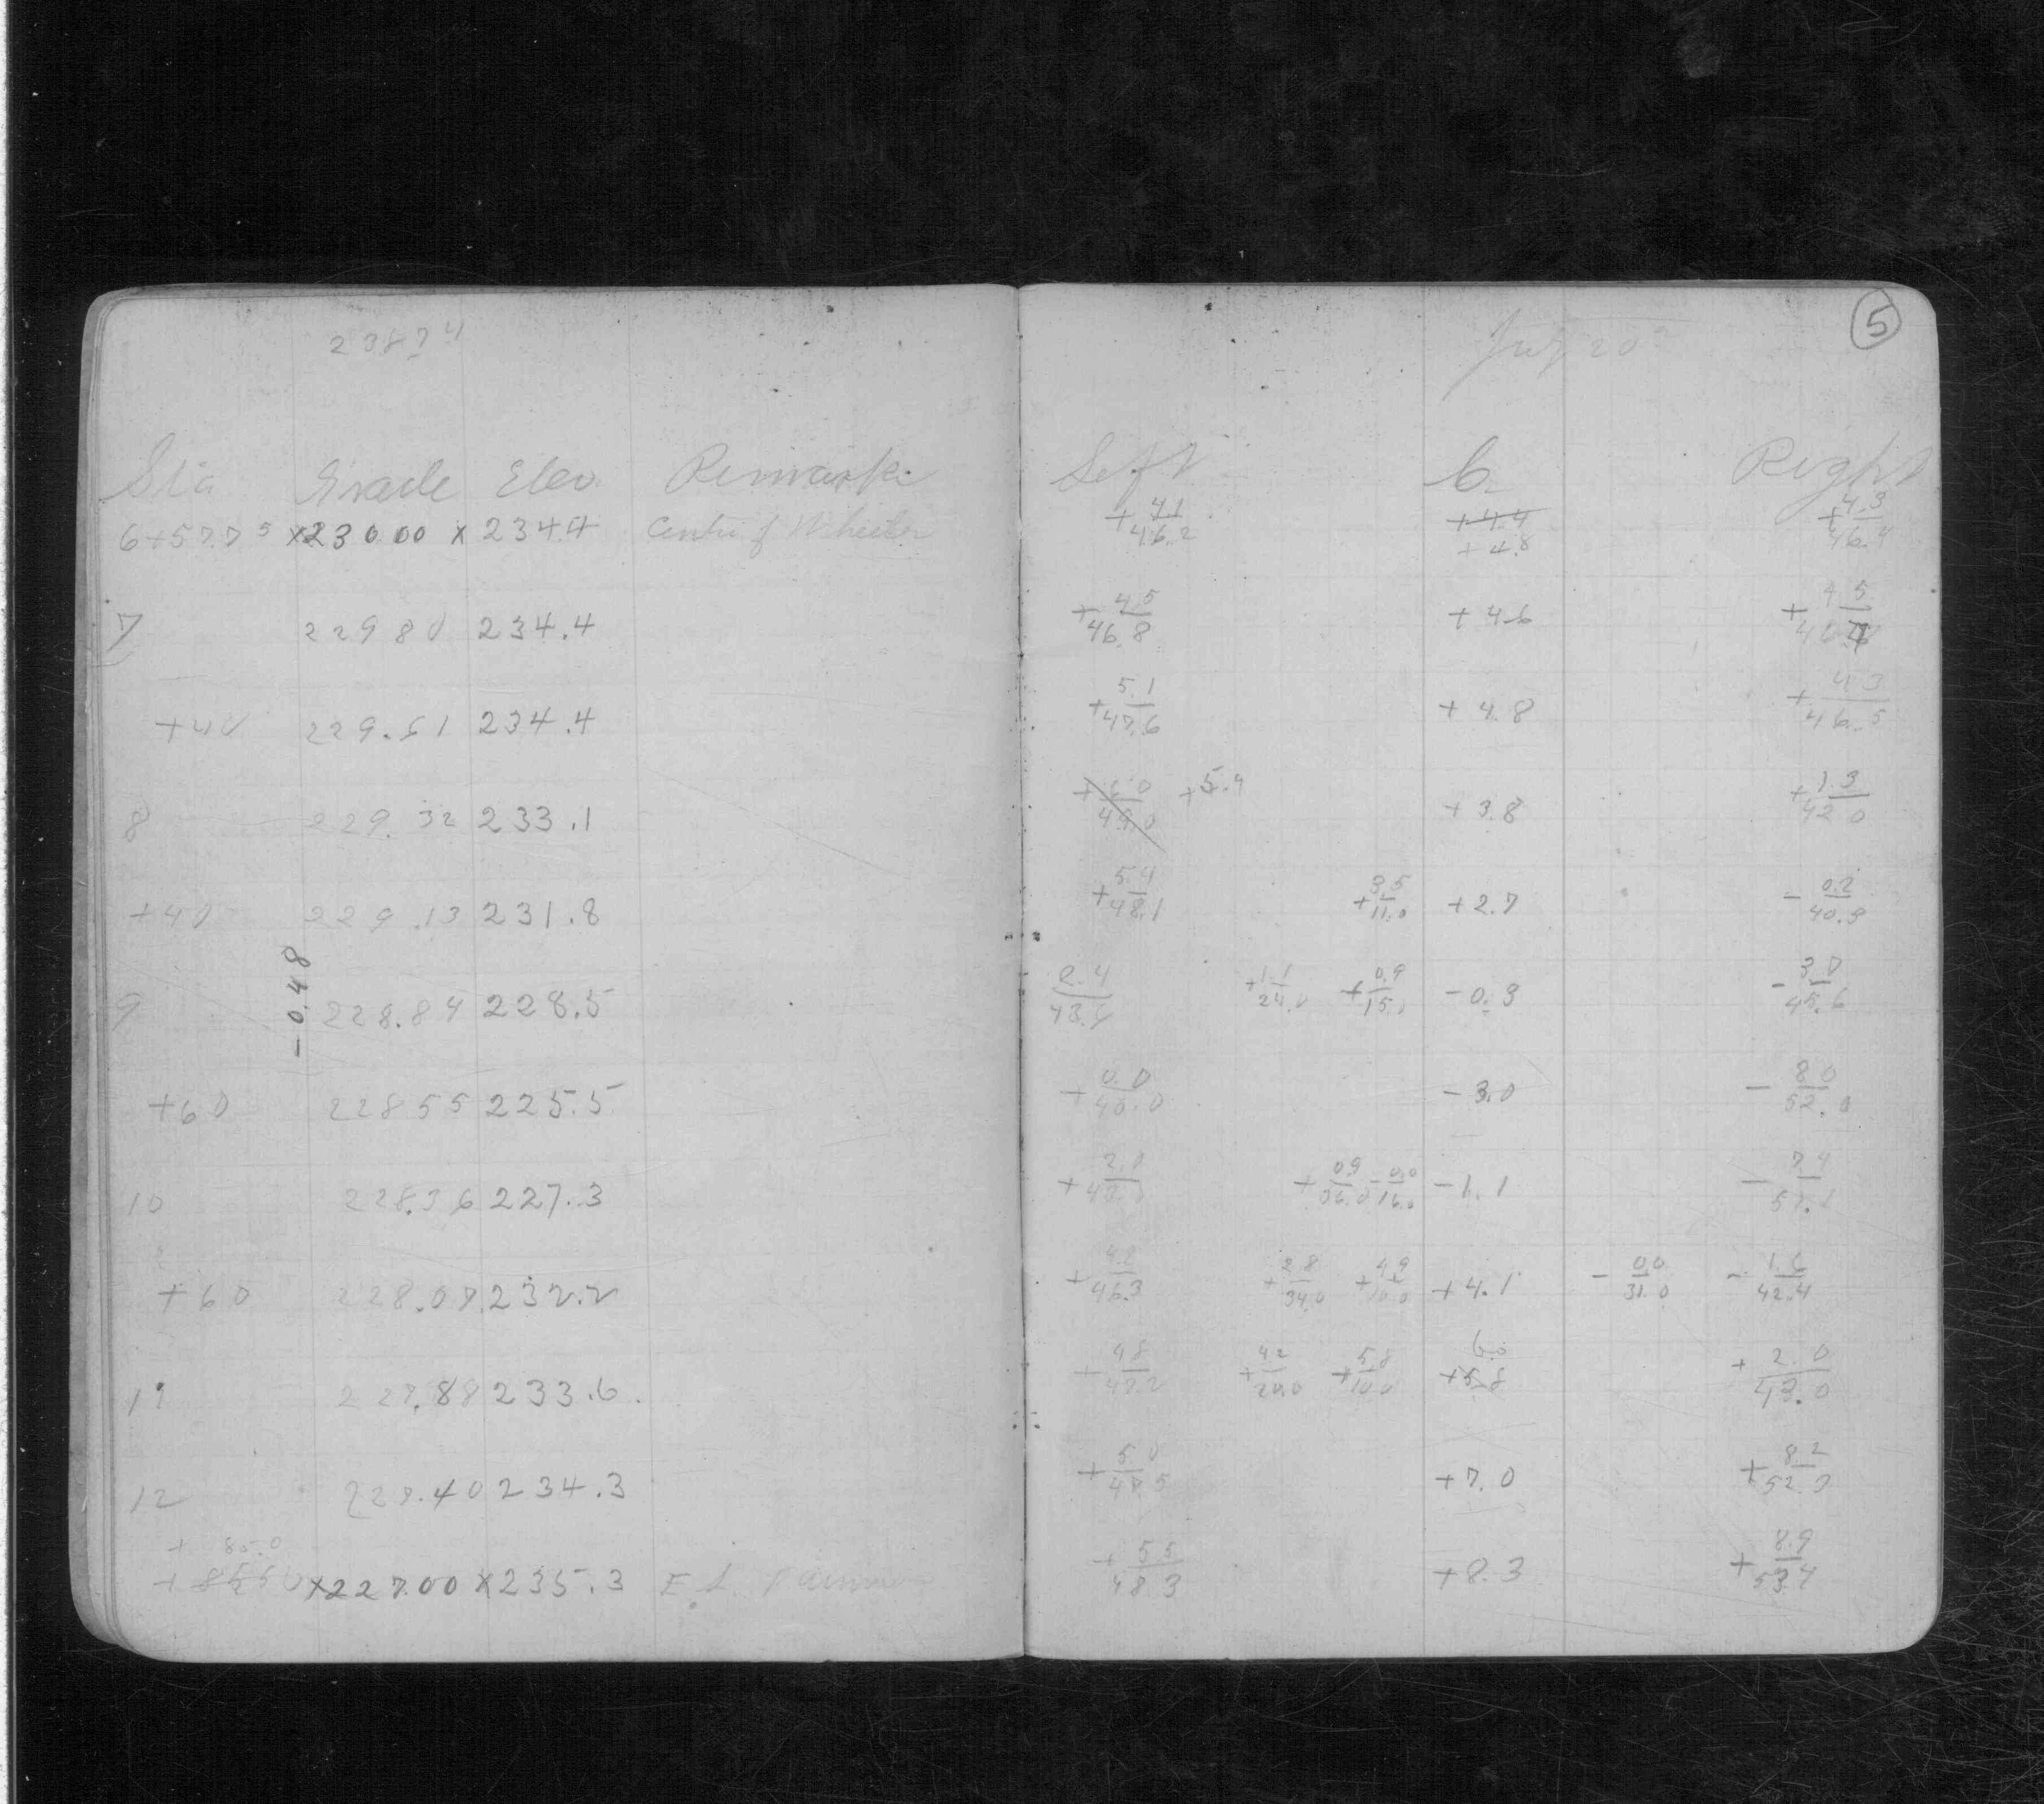 238.74
5
July 20
Sta Grade Elev. Remarks Left C Right
6+57.75 x230.00 x 234.4 Centre of Wheeler + 4.1/46.2 +4.4 + 4.8 + 4.3/46.4
7 229 80 234.4 + 4.5/46.8 + 4.6 + 4.5
+40 229.61 234.4 + 5.1/47.6 + 4.8 + 4.3/46.5
8 229.32 233.1 + 6.0/49.0 +5.4 + 3.8 + 1.3/42.0
+40 229.13 231.8 + 5.4/48.1 + 3.5/11.0 +2.7 - 0.2/40.3
- 0.48
9 228.84 228.5 2.4 + 1.1/24.0 + 0.9/15.0 -0.3 - 3.0/45.6
+60 228 55 225.5 + 0.0/40.0 - 3.0 - 8.0/52.0
10 228.36 227.3 + 0.9/36.0 - 0.0/16.0 -1.1 - 7.4/51.1
+60 228.07 232.2 + 4.2/46.3 + 2.8/34.0 + 4.9/10.0 +4.1 - 0.0/31.0 - 1.6/42.4
11 227.88 233.6 + 4.8/47.2 + 4.2/20.0 + 5.8/10.0 6.0 +5.8 + 2.0/43.0
12 227.40 234.3 + 5.0/47.5 +7.0 + 8.2/52.3
+ 85.0
x227.00 x235.3 E.L. + 5.5/48.3 +8.3 + 8.9/53.4